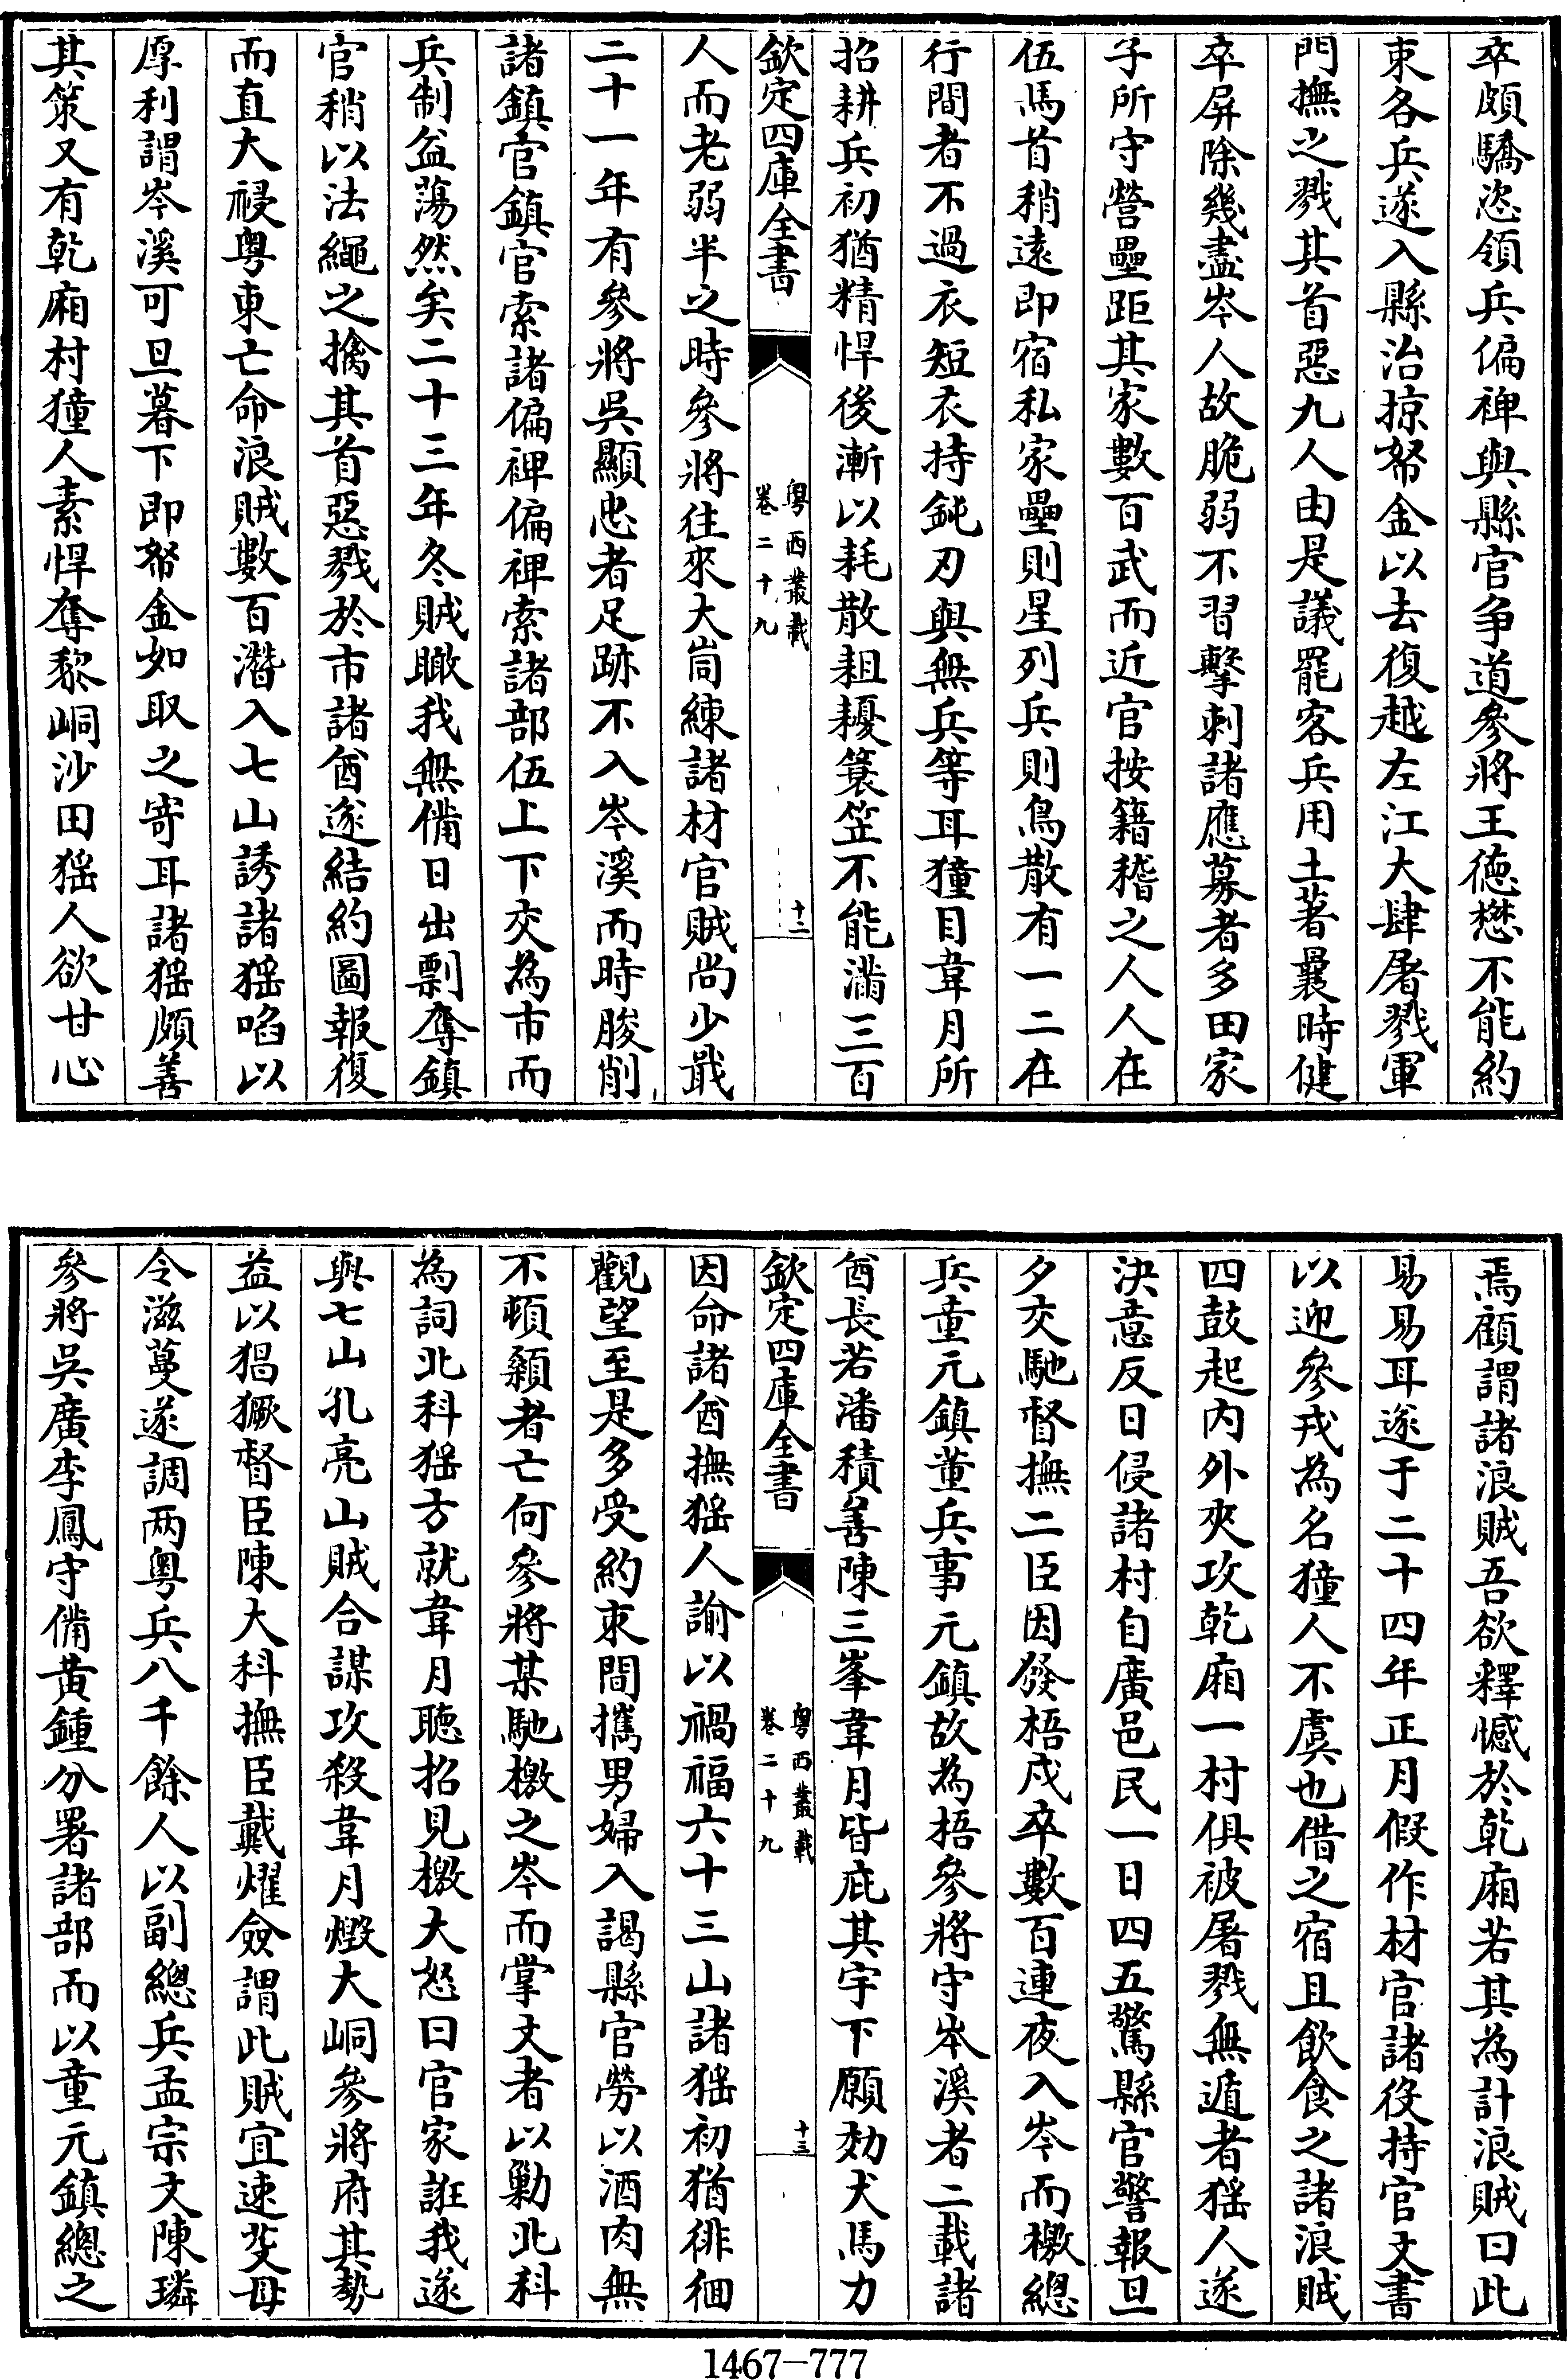 卒頗驕恣領兵偏裨與縣官争道參將王徳懋不能約
束各兵遂入縣治掠帑金以去復越左江大肆屠戮軍
門撫之戮其首惡九人由是議罷客兵用土著曩時健
卒屏除幾盡岑人故脆弱不習擊刺諸應募者多田家
子所守營壘距其家數百武而近官按籍稽之人人在
伍馬首稍遠即宿私家壘則星列兵則鳥散有一二在
行間者不過衣短衣持鈍刃與無兵等耳獞目韋月所
招耕兵初猶精悍後漸以耗散耝耰簑笠不能滿三百
欽定四庫全書
粤西叢載
卷二十九
十二
人而老弱半之時參將往來大峝練諸材官賊尚少戢
二十一年有參將吳顯忠者足跡不入岑溪而時朘削
諸鎮官鎮官索諸偏裨偏裨索諸部伍上下交為市而
兵制盆蕩然矣二十三年冬賊瞰我無備日出剽奪鎮
官稍以法繩之擒其首惡戮於市諸酋遂結約圖報復
而直大祲粤東亡命浪賊數百潛入七山誘諸猺啗以
厚利謂岑溪可旦暮下即帑金如取之寄耳諸猺頗善
其策又有乾廂村獞人素悍奪黎峒沙田猺人欲甘心
焉顧謂諸浪賊吾欲釋憾於乾廂若其為計浪賊曰此
易易耳遂于二十四年正月假作材官諸役持官文書
以迎參戎為名獞人不虞也借之宿且飲食之諸浪賊
四鼓起内外夾攻乾廂一村俱被屠戮無遁者猺人遂
決意反日侵諸村自廣邑民一日四五驚縣官警報旦
夕交馳督撫二臣因發梧戍卒數百連夜入岑而檄總
兵童元鎮董兵事元鎮故為梧參將守岑溪者二載諸
酋長若潘積善陳三峯韋月皆庇其宇下願効犬馬力
欽定四庫全書
粤西叢載
卷二十九
十三
因命諸酋撫猺人諭以禍福六十三山諸猺初猶徘徊
觀望至是多受約束間攜男婦入謁縣官勞以酒肉無
不頓顙者亡何參將某馳檄之岑而掌文者以勦北科
為詞北科猺方就韋月聽招見檄大怒曰官家誑我遂
與七山孔亮山賊合謀攻殺韋月燬大峒參將府其勢
益以猖獗督臣陳大科撫臣戴燿僉謂此賊宜速芟毋
令滋蔓遂調两粤兵八千餘人以副總兵孟宗文陳璘
參將吳廣李鳳守備黄鍾分署諸部而以童元鎮總之
1467-777